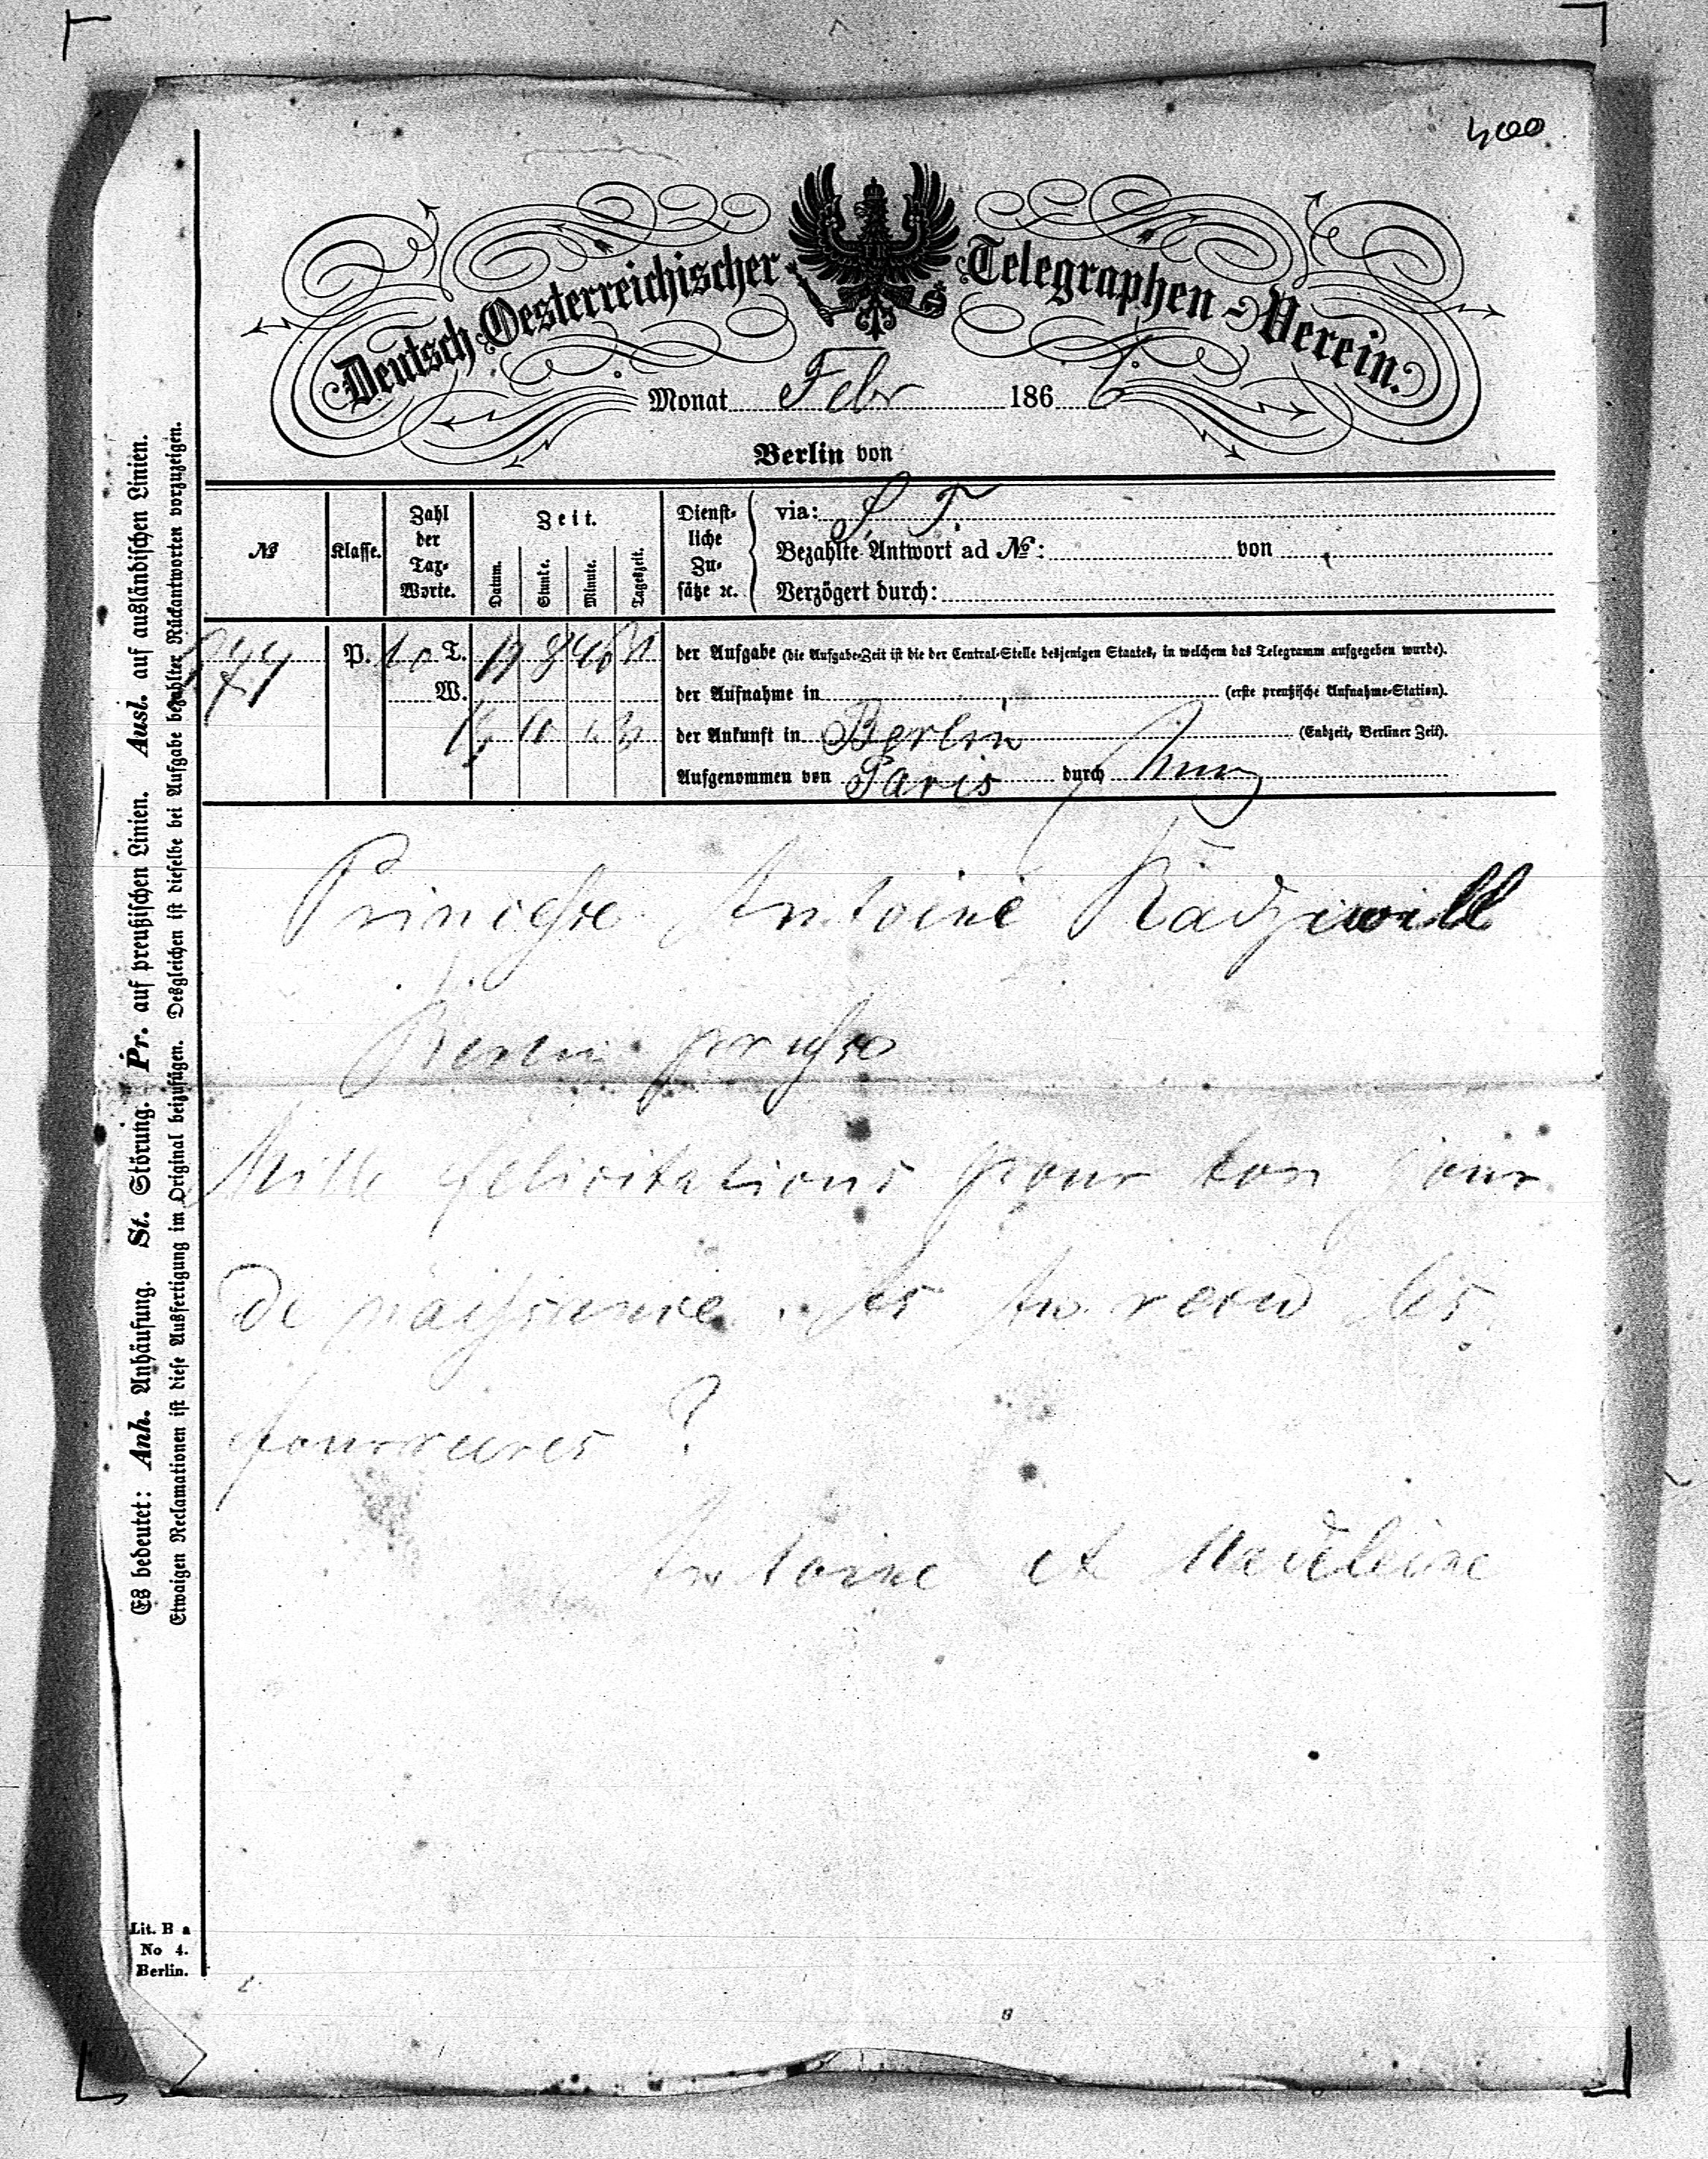 400
Deutsch-Oesterreichischer Telegraphen-Verein.
Monat Febr 1866
Berlin von
№
Klasse.
Zahl der Tax-Worte.
Zeit.
Datum.
Stunde.
Minute.
Tageszeit.
Dienstliche Zusätze ꝛc.
via: S. T.
Bezahlte Antwort ad №: von
Verzögert durch:
P. T. der Aufgabe (die Aufgabe-Zeit ist die der Central-Stelle desjenigen Staates, in welchem das Telegramm aufgegeben wurde).
W. der Aufnahme in (erste preußische Aufnahme-Station).
der Ankunft in Berlin (Endzeit, Berliner Zeit).
Aufgenommen von Paris durch
Princesse Antoine Radziwill
Berlin prusse
Mille felicitations pour ton jour
de naissance. As tu recu les
fourrures ?
Antoine et Madeleine
Es bedeutet: Anh. Anhäufung. St. Störung. Pr. auf preußischen Linien. Ausl. auf ausländischen Linien.
Etwaigen Reclamationen ist diese Ausfertigung im Original beizufügen. Desgleichen ist dieselbe bei Aufgabe bezahlter Rückantworten vorzuzeigen.
Lit. B a
No 4.
Berlin.